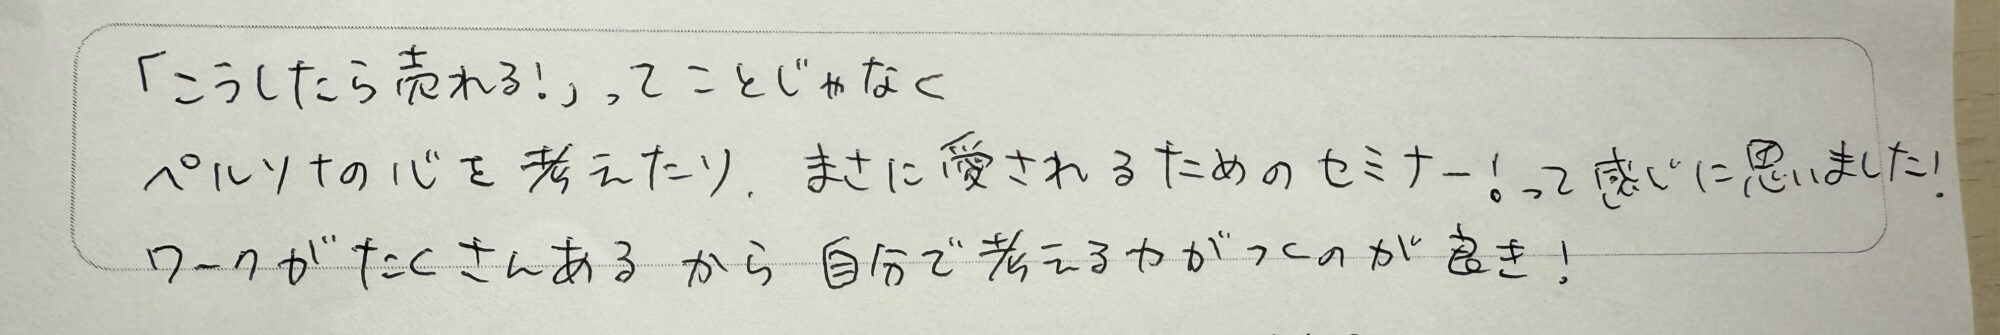 「こうしたら売れる!」ってことじゃなく
ペルソナの心を考えたり、まさに愛されるためのセミナー!って感じに思いました!
ワークがたくさんあるから自分で考える力がつくのが良き!